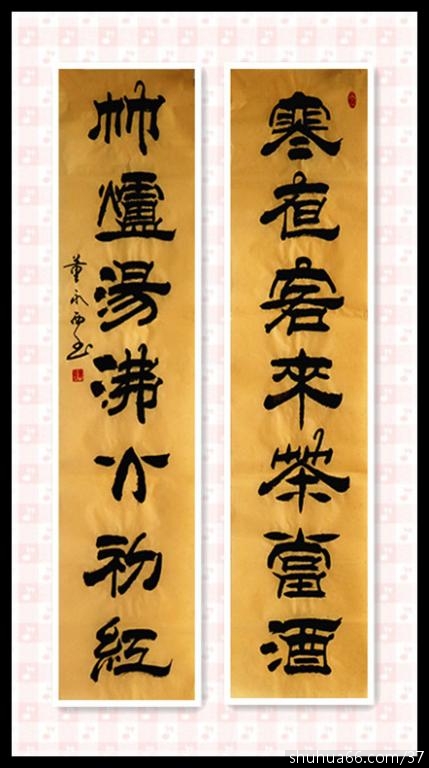 寒夜客來茶當酒
竹爐湯沸火初紅
董永西书
shuhua66.com/37